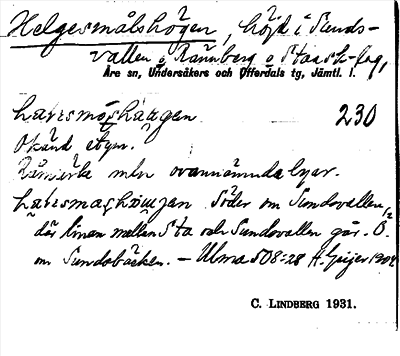 Helgesmålshögen, höjd i Sunds-
vallen o. Rännberg o Staa sk-lag,
Åre sn, Undersåkers och Offerdals tg, Jämtl. l.
230
Okänd etym.
Råmärke mln ovannämnda byar.
Söder om Sundsvallen,
där linan mellan Sta och Sundsvallen går. Ö.
om Sundsbäcken. – Ulma 508:28 H. Geijer 1904
C. LINDBERG 1931.